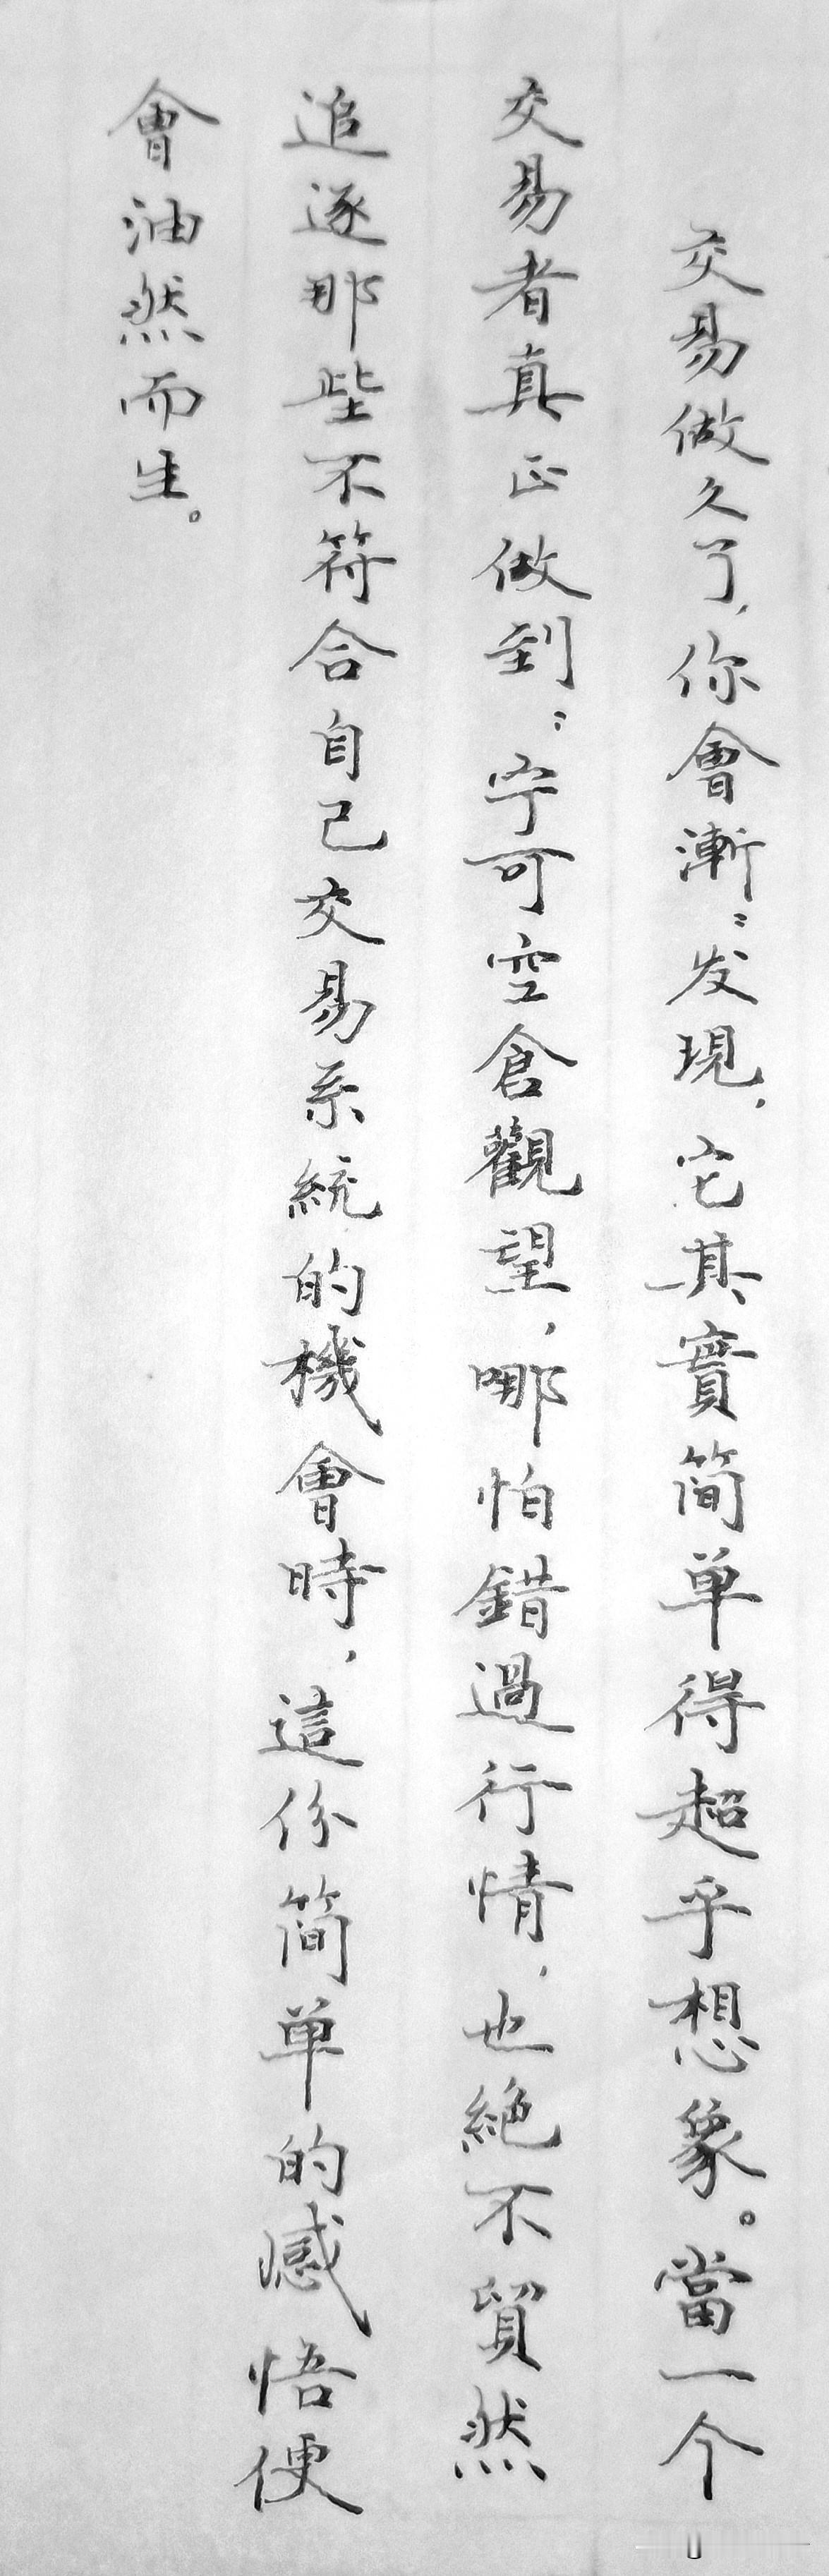 交易做久了，你會漸〻发現，它其實简单得超乎想象。當一个
交易者真正做到：宁可空倉觀望，哪怕錯過行情，也絕不貿然
追逐那些不符合自己交易系統的機會時，這份简单的感悟便
會油然而生。